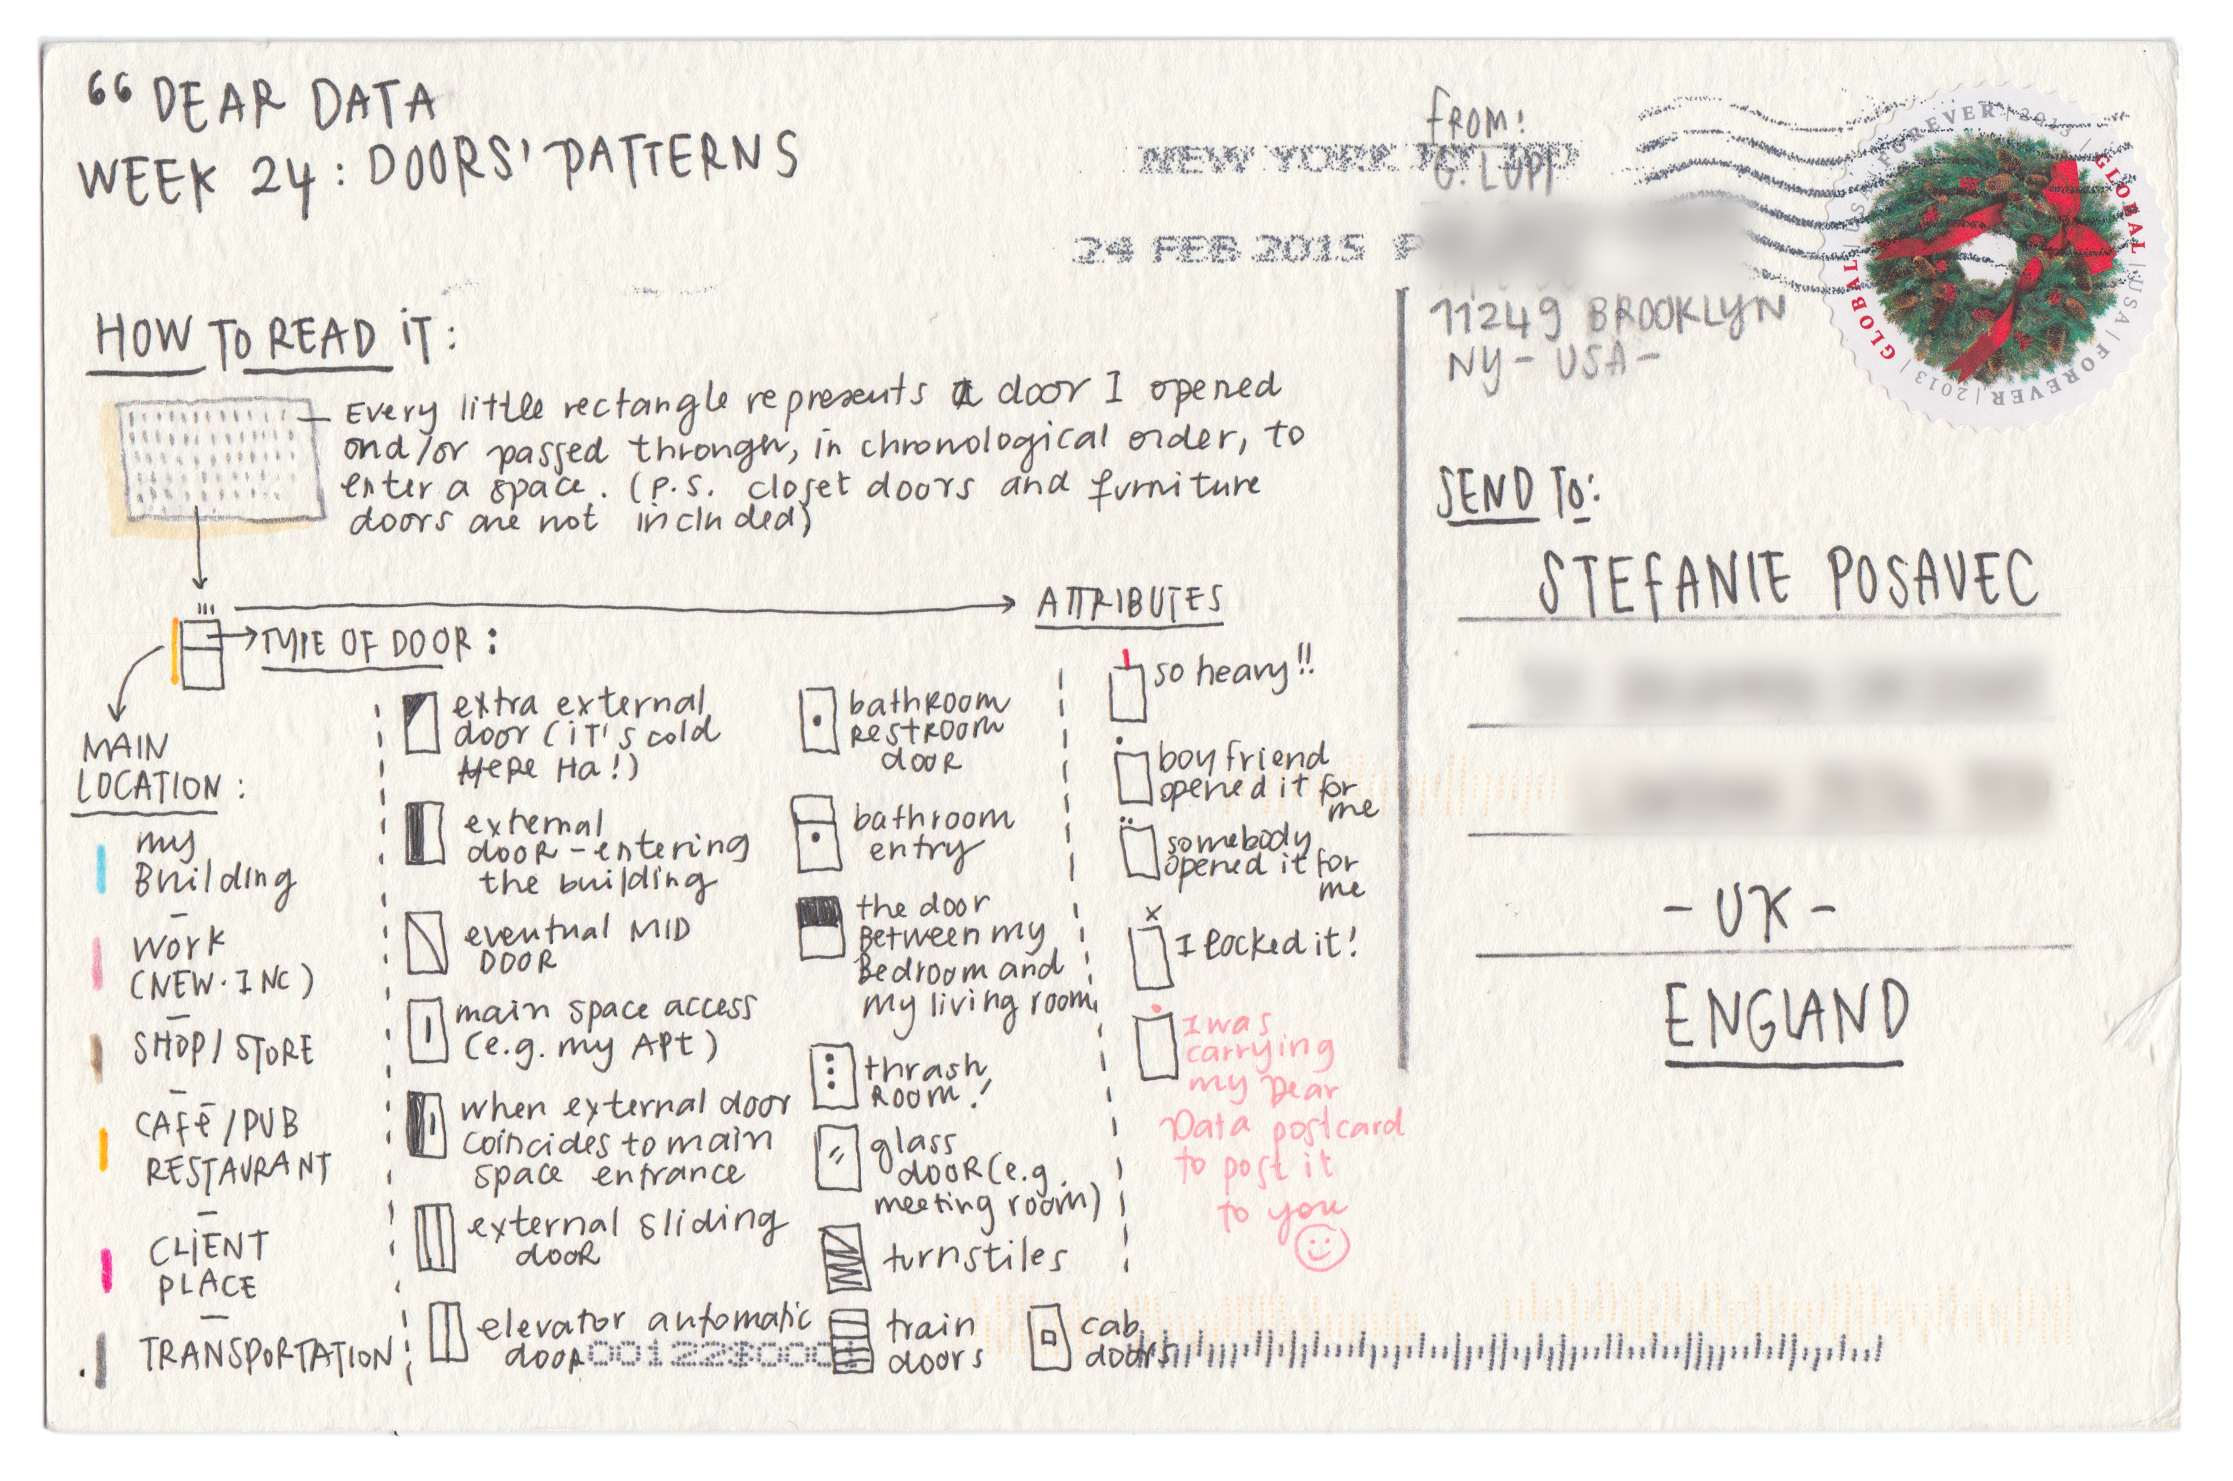 “ DEAR DATA
WEEK 24: DOORS' PATTERNS
HOW TO READ IT:
Every little rectangle represents a door I opened
and/or passed through, in chronological order, to
enter a space. (P.S. closet doors and furniture
doors are not included)
TYPE OF DOOR:
ATTRIBUTES
MAIN
LOCATION:
my
Building
WORK
(NEW.INC)
SHOP/STORE
CAFÉ/PUB
RESTAURANT
CLIENT
PLACE
TRANSPORTATION
extra external
door (iT's cold
HERE HA!)
external
dooR-entering
the building
eventual MID
DOOR
main space access
(e.g. my APt)
when external door
coincides to main
space entrance
external sliding
dooR
elevator automatic
dooR
bathROOM
RestROOM
dooR
bathroom
entry
the door
Between my
Bedroom and
my living room
thrash
ROOM!
glass
dooR (e.g.
meeting room)
turnstiles
train
doors
cab
doors
so heavy!!
boyfriend
opened it for
me
somebody
opened it for
me
I locked it!
I was
carrying
my Dear
Data postcard
to post it
to you
FROM:
G. LUPI
11249 BROOKLYN
NY - USA -
NEW YORK NY
24 FEB 2015 P
FOREVER | 2013 | GLOBAL | USA | FOREVER | 2013 | GLOBAL | USA |
SEND TO:
STEFANIE POSAVEC
- UK -
ENGLAND